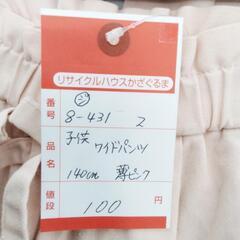 リサイクルハウスかざぐるま
番号 ジ
8-431 2
品名 子供 ワイドパンツ
140cm 薄ピンク
値段 100 円